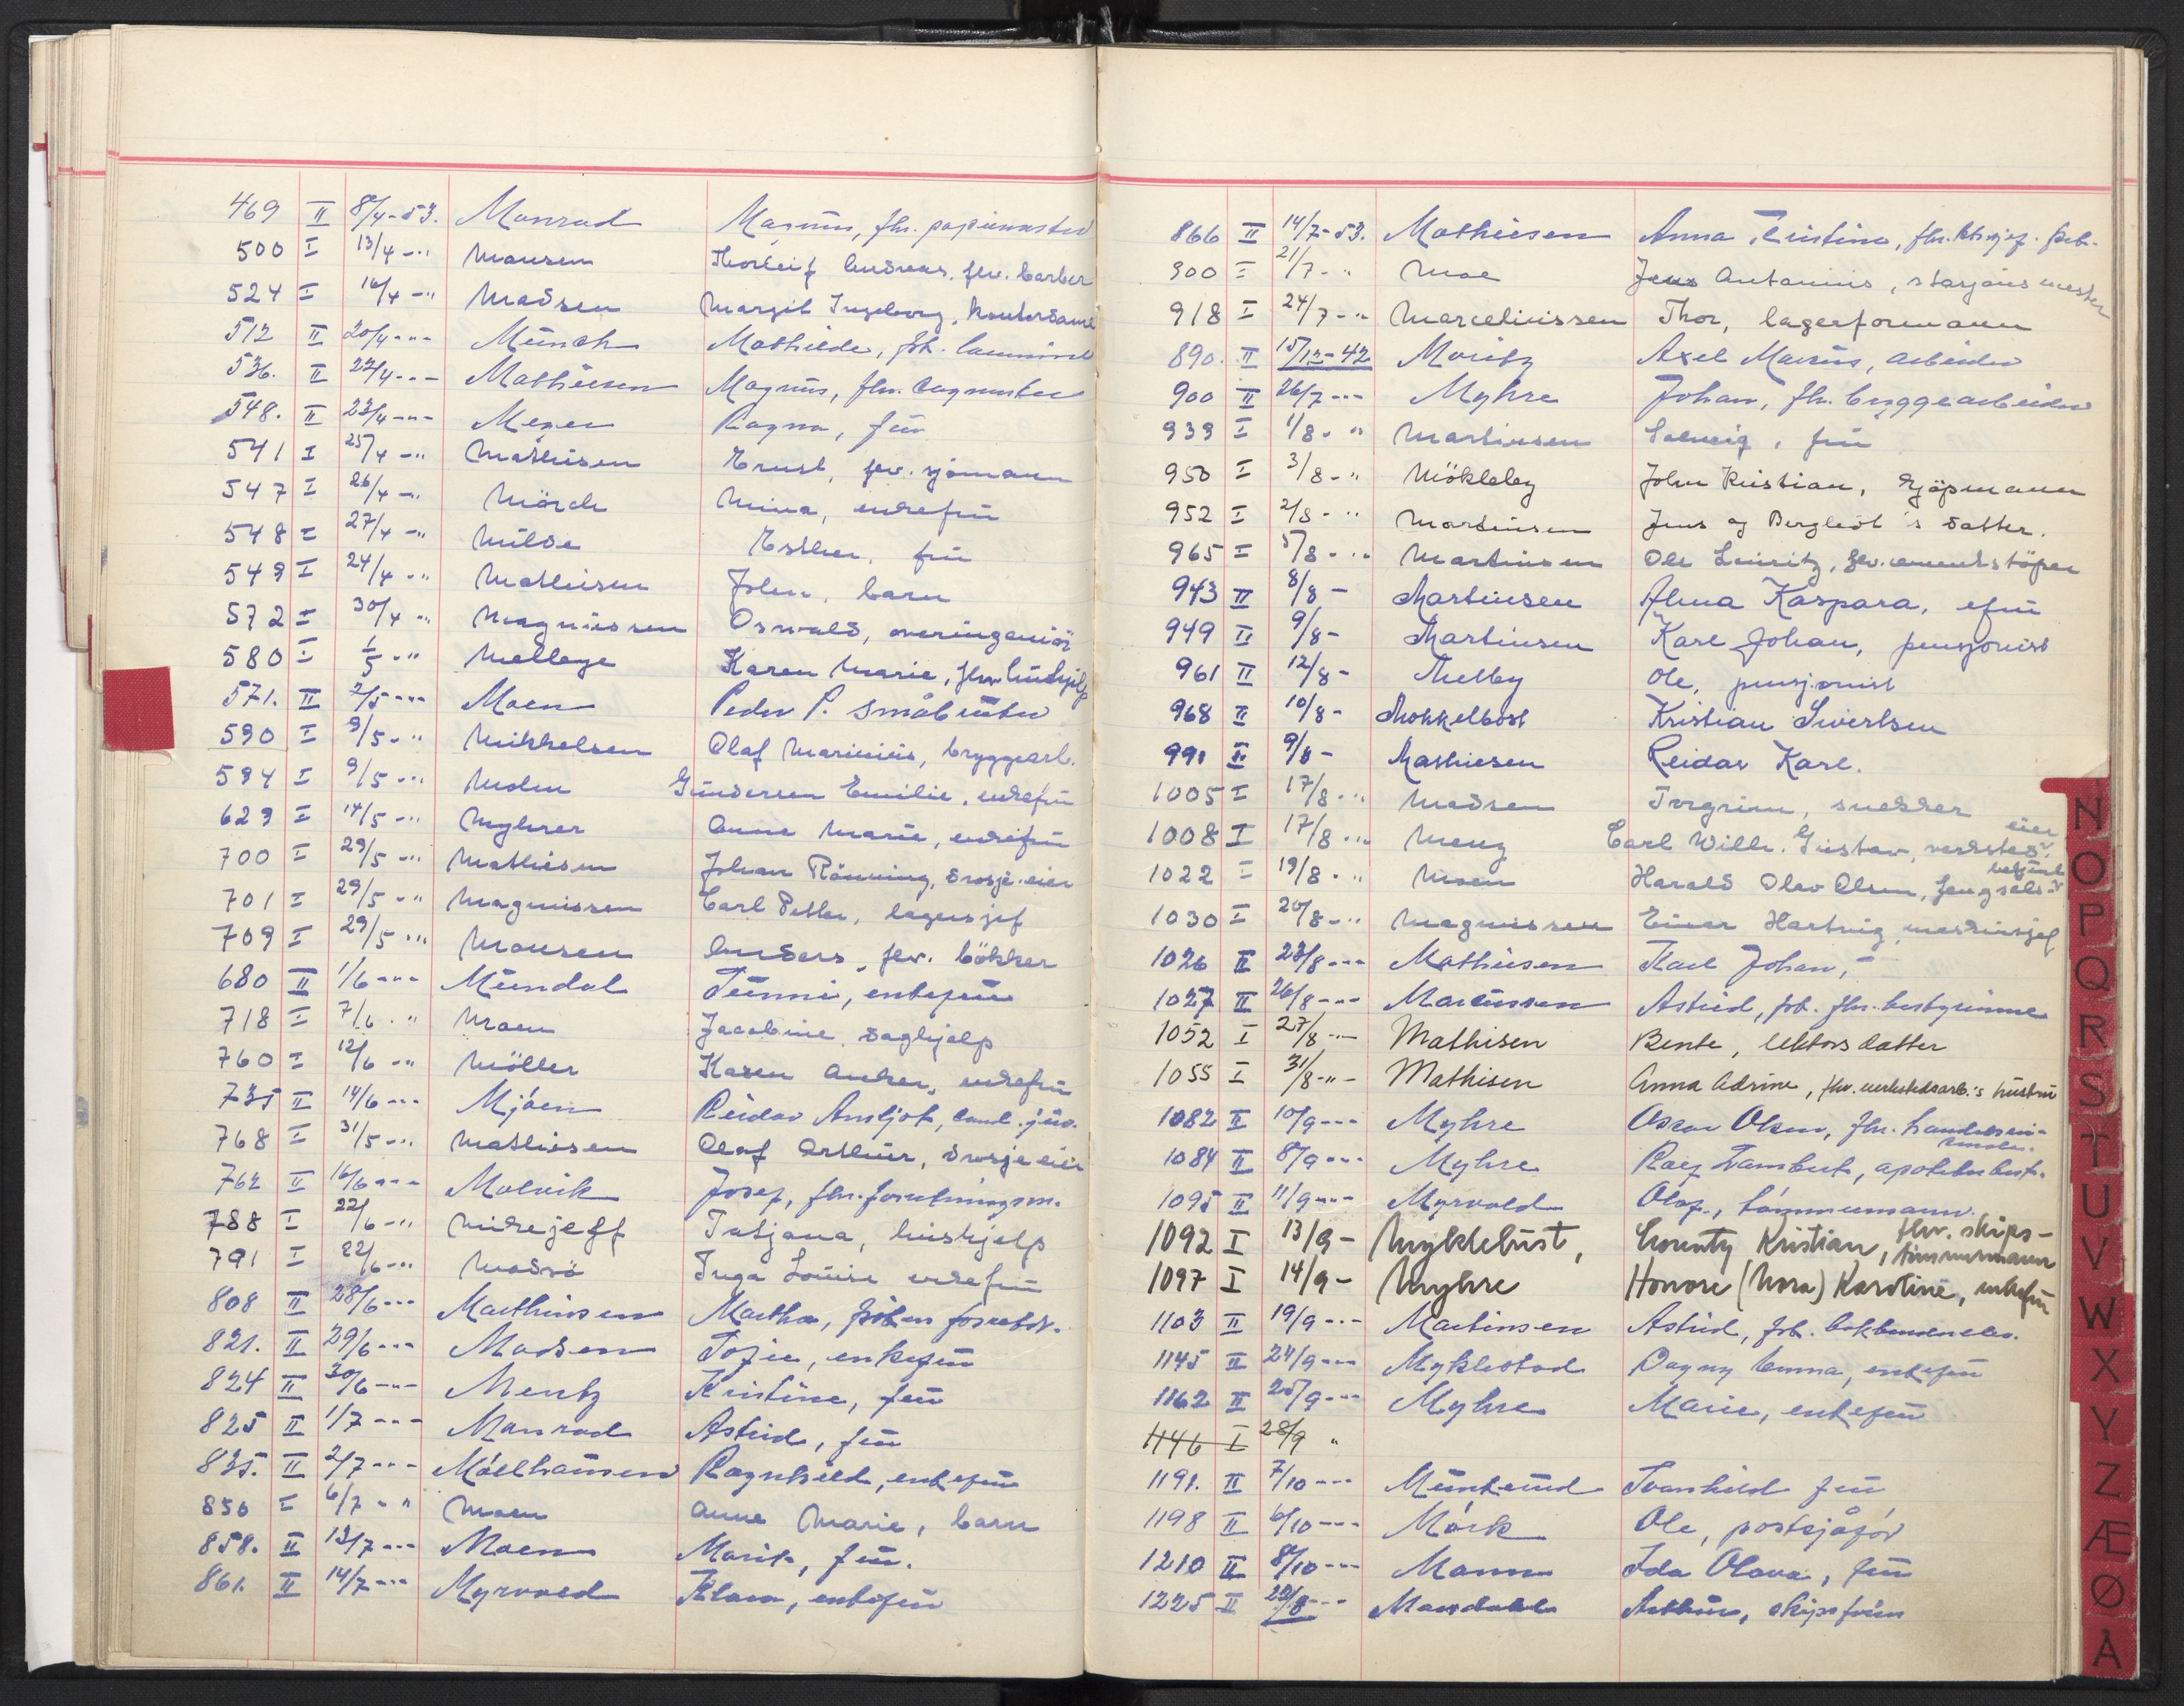 469 II 8/4-53. Monrad Magnus, fhv. papirmester
500 I 13/4 -" Monsen Thorleif Andreas, fhv. barber
524 I 16/4 -" Madsen Margit Ingeborg, kontordame
512 II 20/4 -"- Münch Mathilde, frk.
536. II 22/4 -"- Mathiesen Magnus, fhv.
548. II 23/4 -"- Meyer Ragna, frü
541 I 25/4 -" Mathisen Ernst, fhv. sjömann
547 I 26/4 -" Mörch Mina, enkefrü
548 I 27/4 -" Milde Esther, frü
549 I 24/4 -" Mathisen John, barn
572 I 30/4 -" Magnussen Oswald, overingeniör
580 I 1/5 -" Mellbye Karen Marie, fhv. hüshjelp
571. II 2/5 -"- Moen Peder P. småbrüker
590 I 9/5 -" Mikkelsen Olaf Marinius, bryggearb.
594 I 9/5 -" Molin Gündersen Emilie, enkefrü
629 I 14/5 -" Myhrer Anne Marie, enkefrü
700 I 29/5 -" Mathiesen Johan Rönning, drosje-eier
701 I 29/5 -" Magnussen Carl Petter, lagersjef
709 I 29/5 -" Monsen Anders, fhv. bökker
680 II 1/6 -"- Mündal Jünni, enkefrü
718 I 7/6 -" Moen Jacobine, daghjelp
760 I 12/6 -" Möller Karen Anker, enkefrü
735 II 14/6 -"- Mjöen Reidar Arnljot, cand. jür.
768 I 31/5 -" Mathiesen Olaf Arthur, drosjeeier
762 II 16/6 -"- Molvik Josef, fhv. forretningsm.
788 I 22/6 -" Mirejeff Tatjana, hüshjelp
791 I 22/6 -" Modsö Inga Louise enkefrü
808 II 28/6 -"- Marthinsen Martha, fröken forretdr.
821. II 29/6 -"- Madsen Sofie, enkefrü
824 II 30/6 -"- Mentz Kristine, frü
825 II 1/7 -"- Monrad Astrid, frü
835. II 2/7 -"- Möllhausen Ragnhild, enkefrü
850 I 6/7 -" Moen Anne Marie, barn
858. II 13/7 -"- Moen Marit, frü.
861. II 14/7 -"- Myrvold Klara, enkefrü
866 II 14/7-53. Mathiesen Anna Kristine, fhv.
900 I 21/7 -" Moe Jens Antonius, stasjonsmester
918 I 24/7 -" Marceliussen Thor, lagerformann
890. II 15/12-42 Moritz Axel Marius, arbeider
900 II 26/7 -"- Myhre Johan, fhv. bryggearbeider
939 I 1/8 -" Martinsen Solveig, frü
950 I 3/8 -" Mökleby John Kristian, kjöpmann
952 I 2/8 -" Martinsen Jens og Bergliot's datter.
965 I 5/8 -" Martinsen Ole Lauritz, fhv. cementstöper
943 II 8/8 - Martinsen Alma Kaspara, efrü
949 II 9/8 - Martinsen Karl Johan, pensjonist
961 II 12/8 - Melby Ole, pensjonist
968 II 10/8 - Mokkelbost Kristian Sivertsen
991 II 9/8 - Mathiesen Reidar Karl.
1005 I 17/8 -" Madsen Torgrim, snekker
1008 I 17/8 -" Meng Carl Wilh. Gustav, verksted-
eier
1022 I 19/8 -" Moen Harald Olav Olsen, fengsels-
betjent
1030 I 20/8 -" Magnussen Einar Hartvig, maskinsjef
1026 II 23/8 -"- Mathiesen Karl Johan, -
1027 II 26/8 -"- Marcussen Astrid, frk. fhv. bestyrinne
1052 I 27/8 -"- Mathisen Bente, lektorsdatter
1055 I 31/8 -"- Mathisen Anna Adrine, fhv. verkstedsarb.'s hustrü
1082 II 10/9 -"- Myhre Oscar Olsen, fhv. handelsrei-
sende.
1084 II 8/9 -"- Myhre Rolf Lambert, apotekerbest.
1095 II 11/9 -"- Myrvold Olaf, tömmermann
1092 I 13/9 - Myklebüst, County Kristian, fhv. skips-
timmermann
1097 I 14/9 - Myhre Honore (Nora) Karoline, enkefrü
1103 II 19/9 -"- Martinsen Astrid, frk. bokbinderelev.
1145 II 24/9 -"- Myklestad Dagny Emma, enkefrü
1162 II 25/9 -"- Myhre Marie, enkefrü
1146 I 28/9 "
1191. II 7/10 -"- Münkerud Svanhild frü
1198 II 6/10 -"- Mörk Ole, postsjåför
1210 II 8/10 -"- Mann Ida Olava, frü
1225 II 22/8 -"- Mandahl Arthur, skipsförer
N
O
P
Q
R
S
T
U
V
W
X
Y
Z
Æ
Ø
A